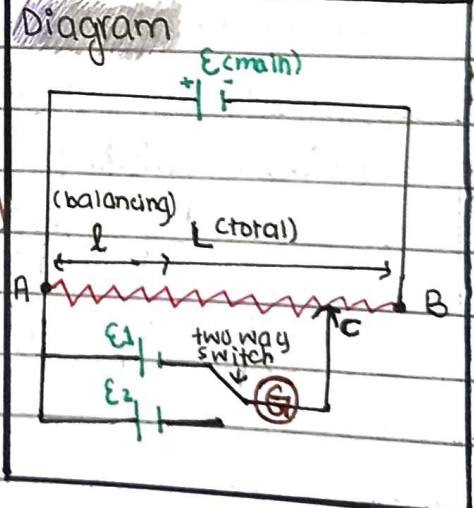 Diagram
ε(main)
+ -
(balancing)
l L (total)
A B
C
ε1 two way
switch
ε2 G